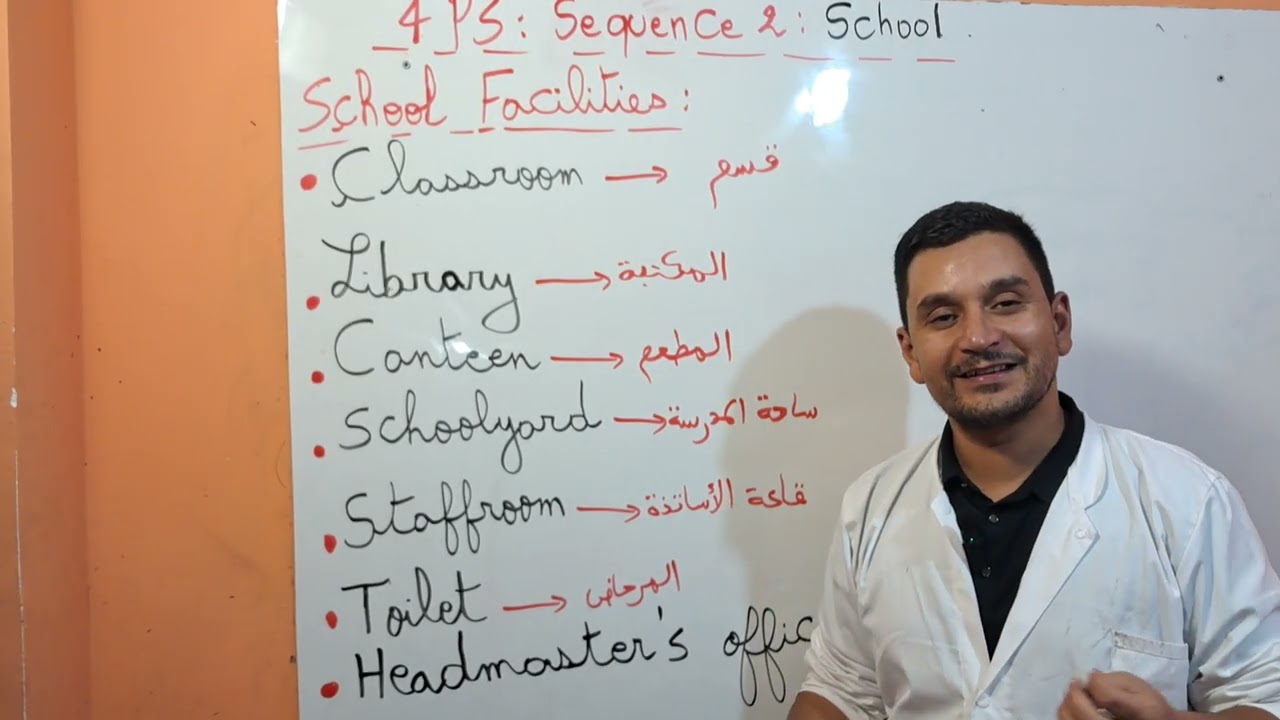 4 PS: Sequence 2: School.
School Facilities:
• Classroom → قسم
• Library → المكتبة
• Canteen → المطعم
• Schoolyard → ساحة المدرسة
• Staffroom → قاعة الأساتذة
• Toilet → المرحاض
• Headmaster's offic